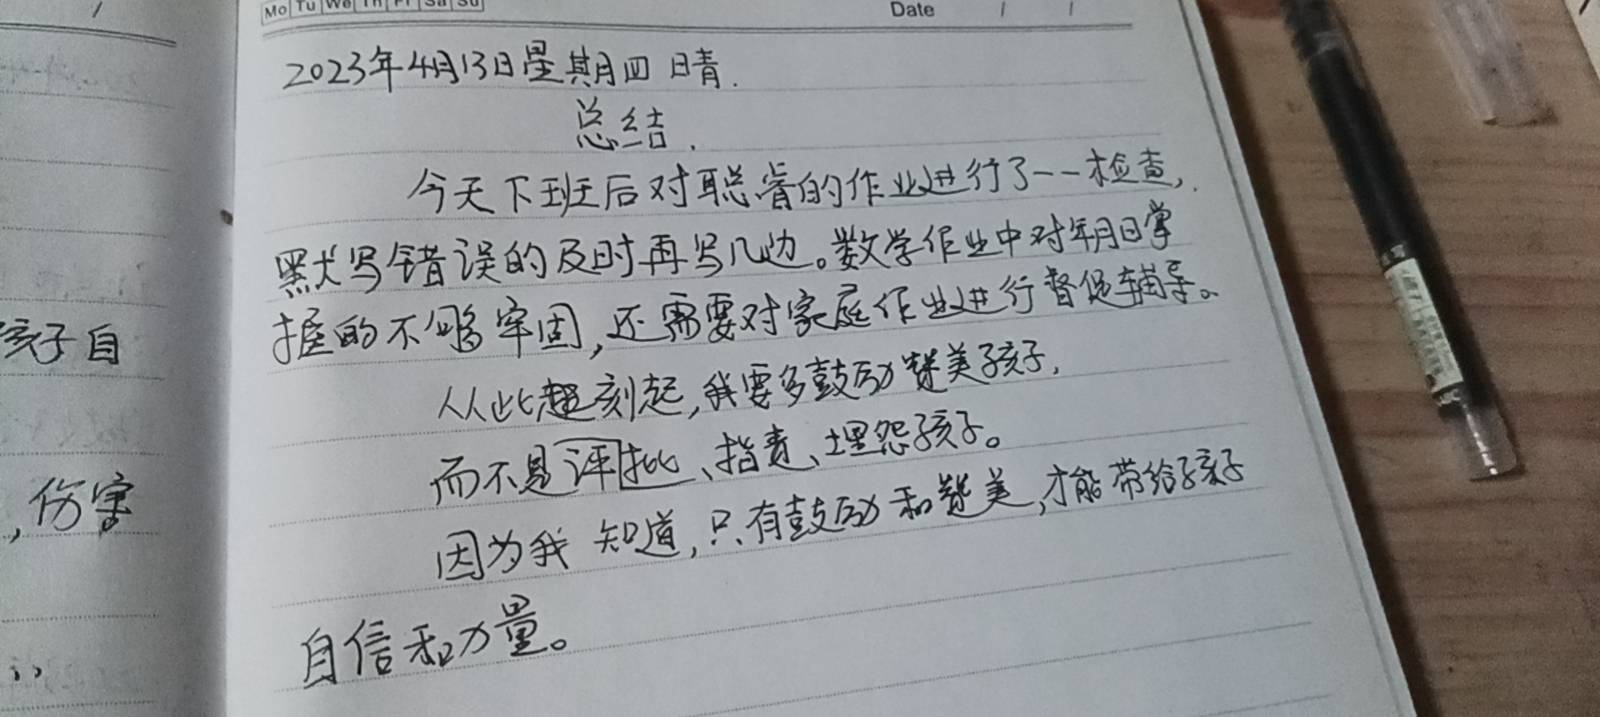 Mo Tu We Th Fr Sa Su
Date / /
2023年4月13日星期四 晴.
总结.
今天下班后对聪睿的作业进行了一一检查,
默写错误的及时再写几边。数学作业中对年月日掌
握的不够牢固,还需要对家庭作业进行督促辅导。
从此刻起,我要多鼓励赞美孩子,
而不是评批、指责、埋怨孩子。
因为我知道,只有鼓励和赞美,才能带给孩子
自信和力量。
孩子自
,伤害